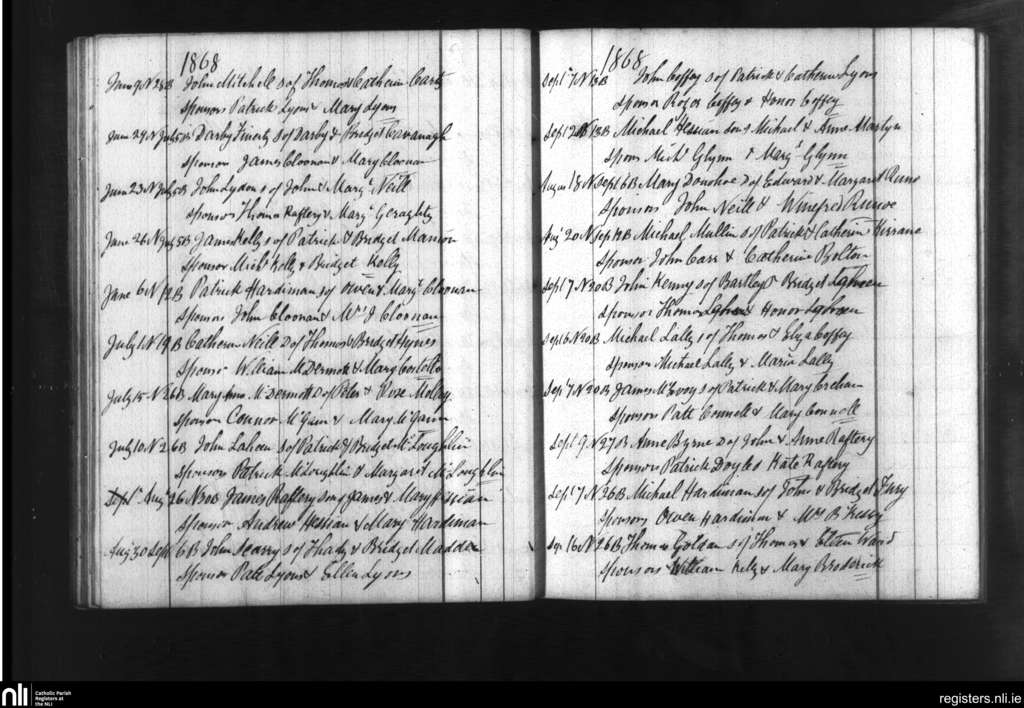 1868
June 9 N 28 B John Mitchell s of Thomas & Catherin Carty
Sponsors Patrick Lyons Mary Lyons
June 29 N July 5 B Darby Finerty s of Darby & Bridget Cavanagh
Sponsors James Cloonan & Mary Cloonan
June 23 N July 5 B John Lydon s of John & Margt Neill
Sponsors Thomas Raftery & Margt Geraghty
June 26 N July 5 B James Kelly s of Patrick & Bridget Mannion
Sponsor Michl Kelly & Bridget Kelly
June 6 N B Patrick Hardiman s of Owen & Margt Cloonan
Sponsors John Cloonan & Mrs J Cloonan
July 1 N 19 B Catherin Neill D of Thomas & Bridget Hynes
Sponsr William McDermott & Mary Costello
July 15 N 26 B Mary Anne McDermott D of Peter & Rose Molloy
Sponsors Connor McGann & Mary McGann
July 10 N 26 B John Lahen s of Patrick & Bridget McLoughlin
Sponsors Patrick McLoughlin & Margaret McLoughlin
Sept Aug 26 N 30 B James Raftery son of James & Mary Hessian
Sponsor Andrew Hessian & Mary Hardiman
Aug 30 Sept 6 B John Scarry s of Thady & Bridget Madden
Sponsor Patt Lyons & Ellen Lyons
1868
Sept 7 N 13 B John Coffey s of Patrick & Catherin Lyons
Sponsor Roger Coffey & Honor Coffey
Sept 12 N 13 B Michael Hessian son of Michael & Anne Martyn
Spons Michl Glynn & Margt Glynn
August 18 N Sept 6 B Mary Donohoe D of Edward & Margaret Ruane
Sponsors John Neill & Winefred Ruane
Aug 20 N Sep B Michael Mullin s of Patrick & Catherin Kirrane
Sponsor John Carr & Catherine Bolton
Sept 7 N 20 B John Kenny s of Bartley & Bridget
Sponsor Thomas & Honor
Sept 6 N 20 B Michael Lally s of Thomas & Eliza Coffey
Sponsors Michael Lally & Maria Lally
Sep 7 N 20 B James McEvoy s of Patrick & Mary Crehan
Sponsor Patt Connell & Mary Connell
Sept 9 N 27 B Anne Byrne D of John & Anne Raftery
Sponsor Patrick Doyle & Kate Raftery
Sept 7 N 26 B Michael Hardiman s of John & Bridget Fury
Sponsors Owen Hardiman & Mrs B
Sep 16 N 26 B Thomas Goldan s of Thomas & Ellen Ward
Sponsors William Kelly & Mary Broderick
nli
Catholic Parish
Registers at
the NLI
registers.nli.ie